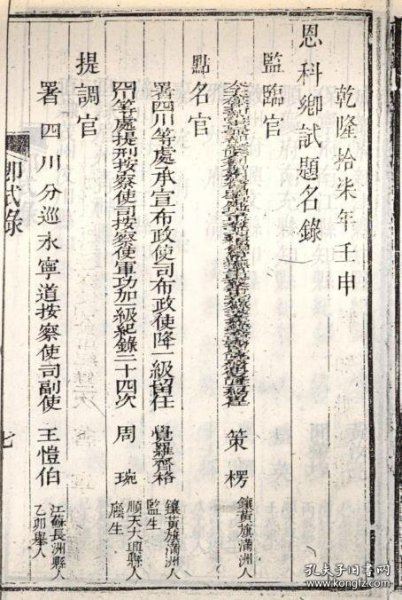 乾隆拾柒年壬申
恩科鄉試題名錄
監臨官
策楞 鑲黃旗滿洲人
點名官
署四川等處承宣布政使司布政使降一級留任 覺羅齊格 鑲黃旗滿洲人監生
四川等處提刑按察使司按察使軍功加一級紀錄三十四次 周琬 順天大興縣人廕生
提調官
署四川分巡永寧道按察使司副使 王愷伯 江蘇長洲縣人乙卯舉人
鄉試錄
七
孔夫子旧书网